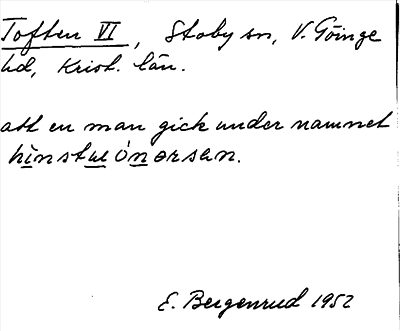 Toften VI, Stoby sn, V. Göinge
hd, Krist. län.
att en man gick under namnet
hinstɯónərsən.
E. Bergenrud 1952